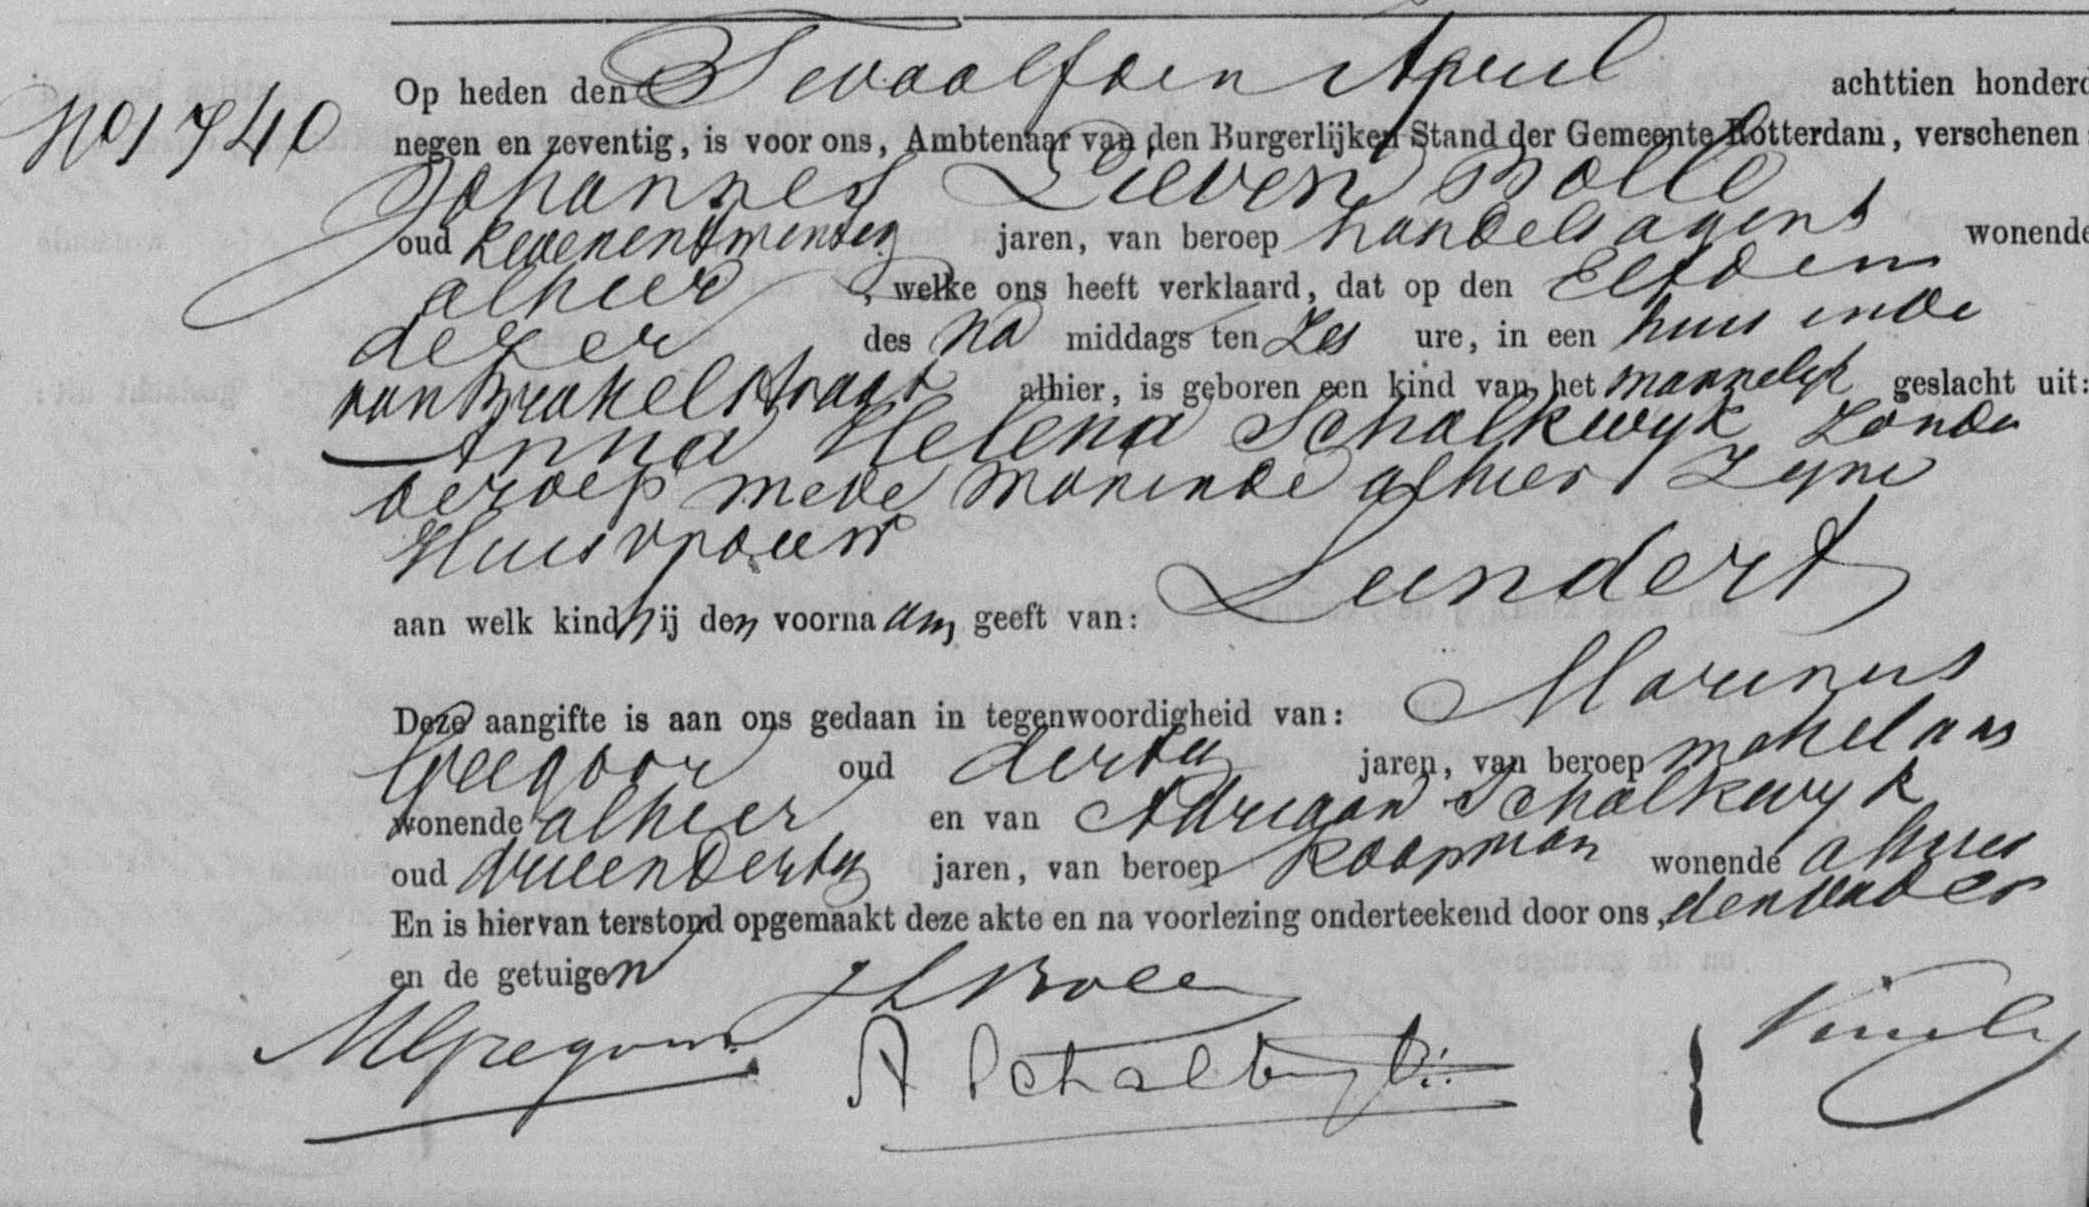 No 1740
Op heden den Twaalfden April achttien honderd
negen en zeventig, is voor ons, Ambtenaar van den Burgerlijken Stand der Gemeente Rotterdam, verschenen
Johannes Lieven Bolle
oud zevenentwintig jaren, van beroep handelsagent wonende
alhier, welke ons heeft verklaard, dat op den Elfden
dezer des na middags ten zes ure, in een huis in de
van Brakelstraat alhier, is geboren een kind van het mannelijk geslacht uit:
Anna Helena Schalkwyk zonder
beroep mede wonende alhier zyne
Huisvrouw
aan welk kind hij den voornaam geeft van: Leendert
Deze aangifte is aan ons gedaan in tegenwoordigheid van: Marinus
Gregoor oud dertig jaren, van beroep makelaar
wonende alhier en van Adriaan Schalkwyk
oud drieendertig jaren, van beroep Koopman wonende alhier
En is hiervan terstond opgemaakt deze akte en na voorlezing onderteekend door ons, den vader
en de getuigen
J L Bolle
M Gregoor
A Schalkwyk